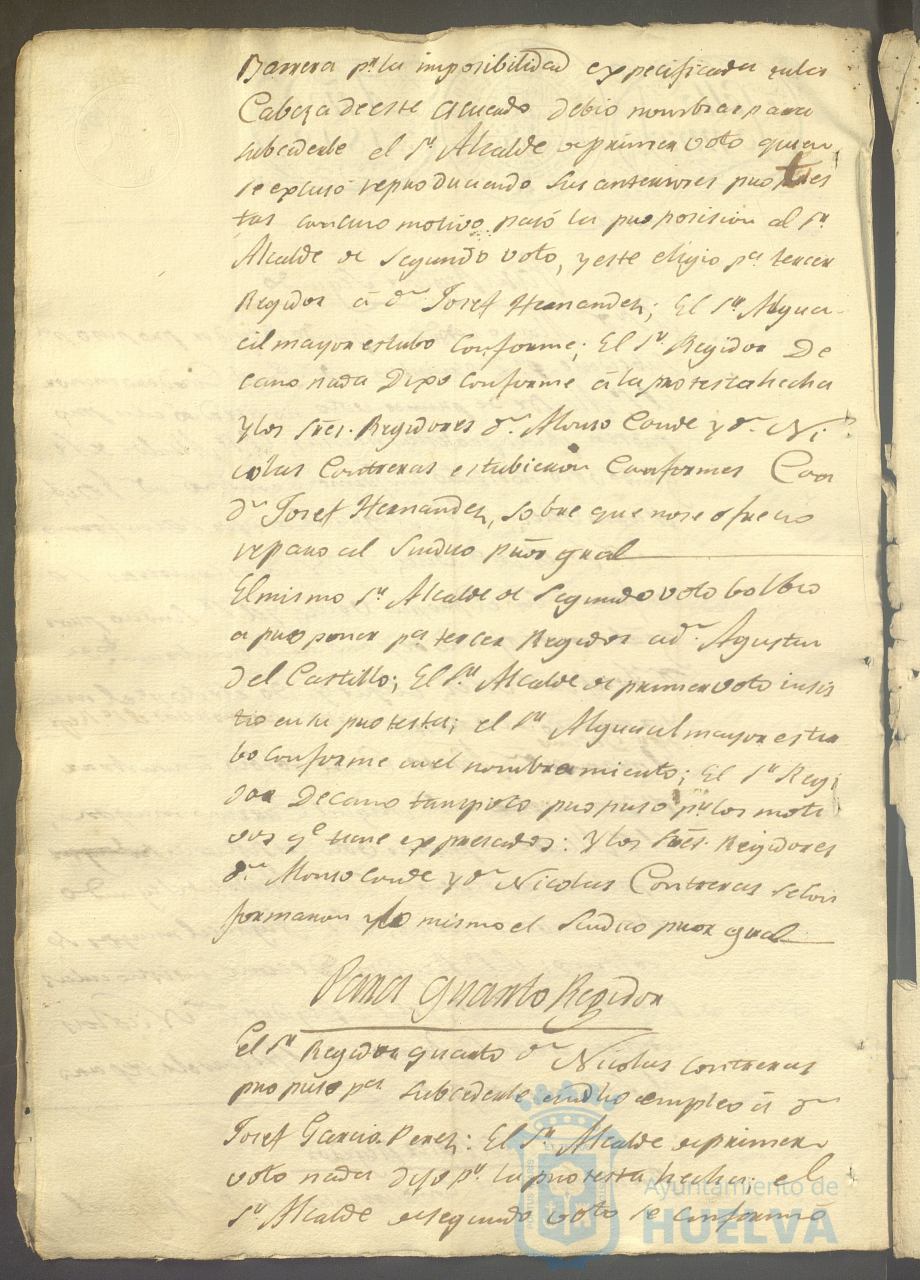 Barrera pr. la imposibilidad expecificada en la
Cabeza de este acuerdo debio nombrar para
subcederle el Sr. Alcalde de primer voto quien
se excusó reproduciendo sus anteriores protes
tas con cuio motivo pasó la proposicion al Sr.
Alcalde de Segundo voto, y este eligio pa. tercer
Regidor á dn. Josef Hernandez; El Sr. Algua-
cil mayor estubo conforme; El Sr. Regidor De
cano nada Dixo conforme á la protesta hecha
y los Sres. Regidores dn. Alonso Conde y dn. Ni
colas Contreras estubieron Conformes Con
dn. Josef Hernandez, sobre que no se ofrecio
reparo al Sindico Pror. gral
El mismo Sr. Alcalde de Segundo voto bolbio
a proponer pa. tercer Regidor a dn. Agustin
del Castillo; El Sr. Alcalde de primer voto insis
tio en su protesta; el Sr. Alguacil mayor estu
bo conforme en el nombramiento; El Sr. Regi
dor Decano tampoco propuso pr. los moti
vos qe. tiene expresados: Y los Sres. Regidores
dn. Alonso Conde y dn. Nicolas Contreras se con
formaron y lo mismo el Sindico pror gral
Para quarto Regidor
El Sr. Regidor quarto dn. Nicolas Contreras
propuso pa. subcederle en dho empleo á dn.
Josef Garcia Perez: El Sr. Alcalde de primer
voto nada dijo pr. la protesta hecha; el
Sr. Alcalde de segundo voto se conformó
Ayuntamiento de
HUELVA